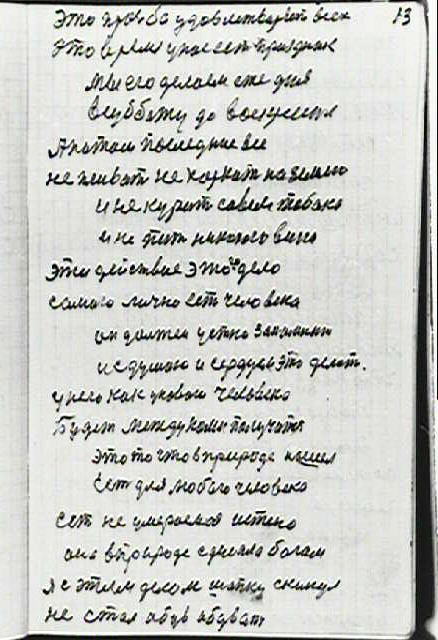 это просьба удовлетворит всех 13
это время у нас ест праздник
мы его делаем сже дня
в суббату до воскресеня
А патом последние все
не плеват не харкат на землю
и не курит савсем табака
и не пит никакого вина
эти действие это дело
самого лично ест человека
он должен устно запомнит
и с душою и сердцем это делат.
у него как у новом человека
Будет между нами получатся
это то что в природе нашел
Ест для любого человека
Ест не умераемая истена
она в природе сделала богам
я с этим делом шапку скинул
не стал обув абуват